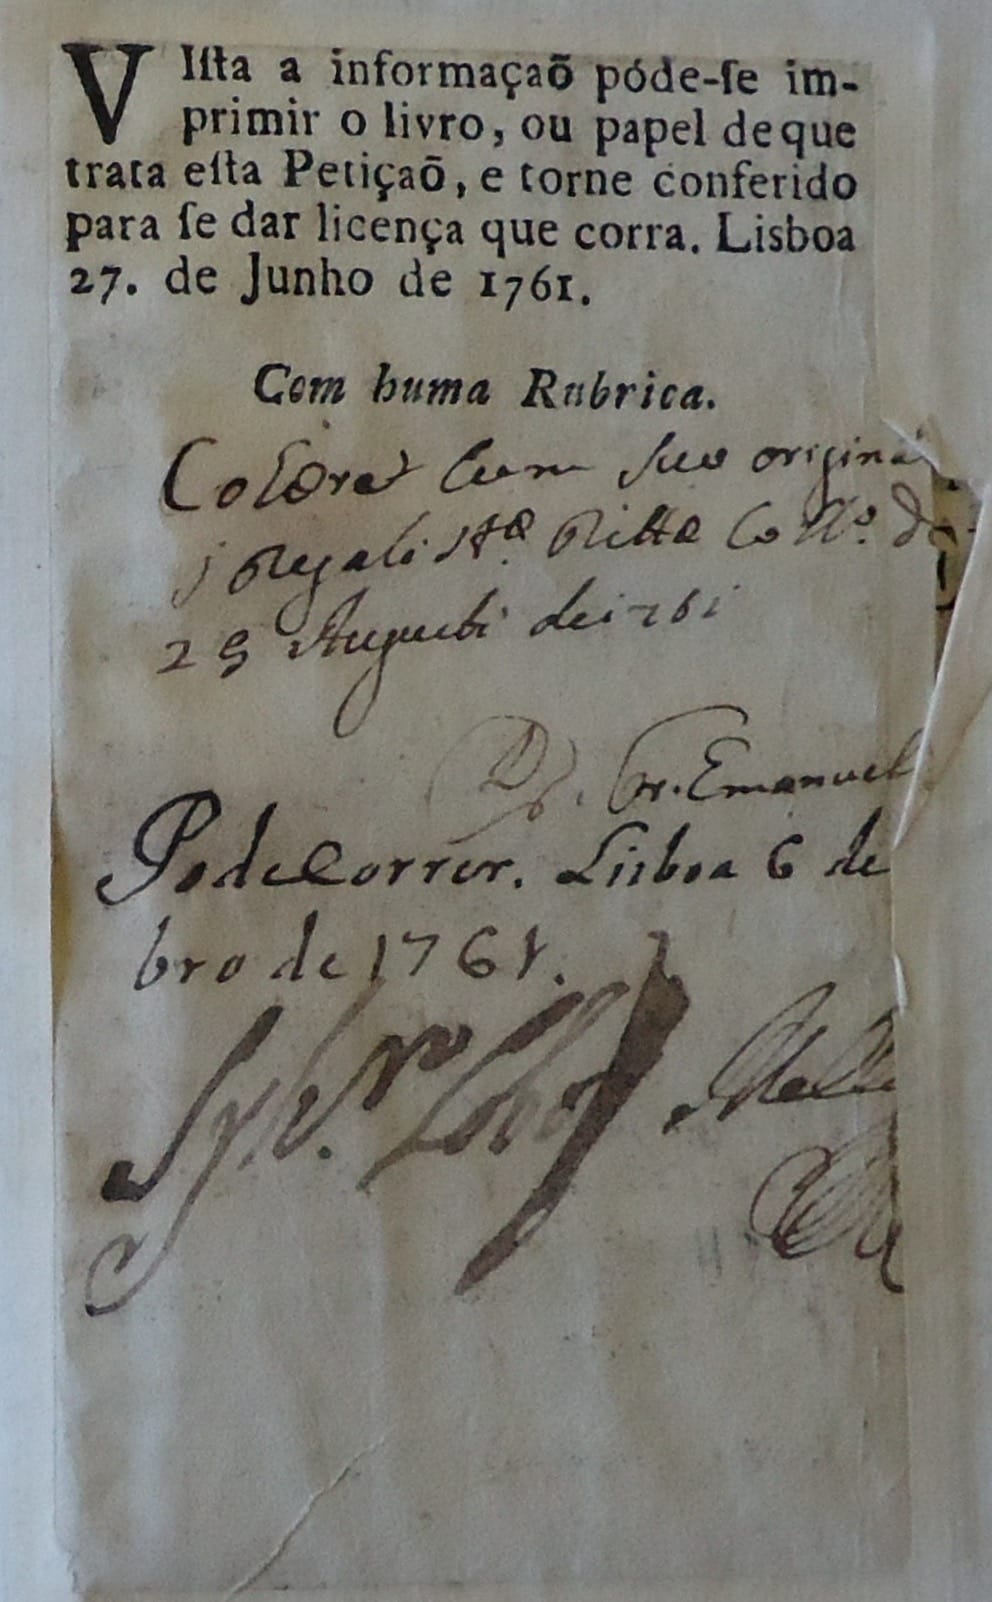 VIſta a informaçaõ póde-ſe im-
primir o livro, ou papel de que
trata eſta Petiçaõ, e torne conferido
para ſe dar licença que corra. Lisboa
27. de Junho de 1761.
Com huma Rubrica.
Cohæret cum suo origina
Regali Ritta
29 Augusti de 1761
Fr. Emanuel
Pode Correr. Lisboa 6 de
bro de 1761.
Sylv.ro Lobo Mello